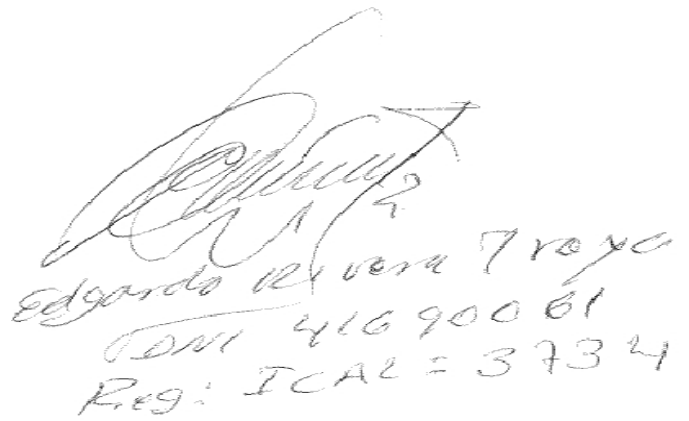 Edgardo Rivera Troya
DNI 41690061
Reg: ICAL = 3734